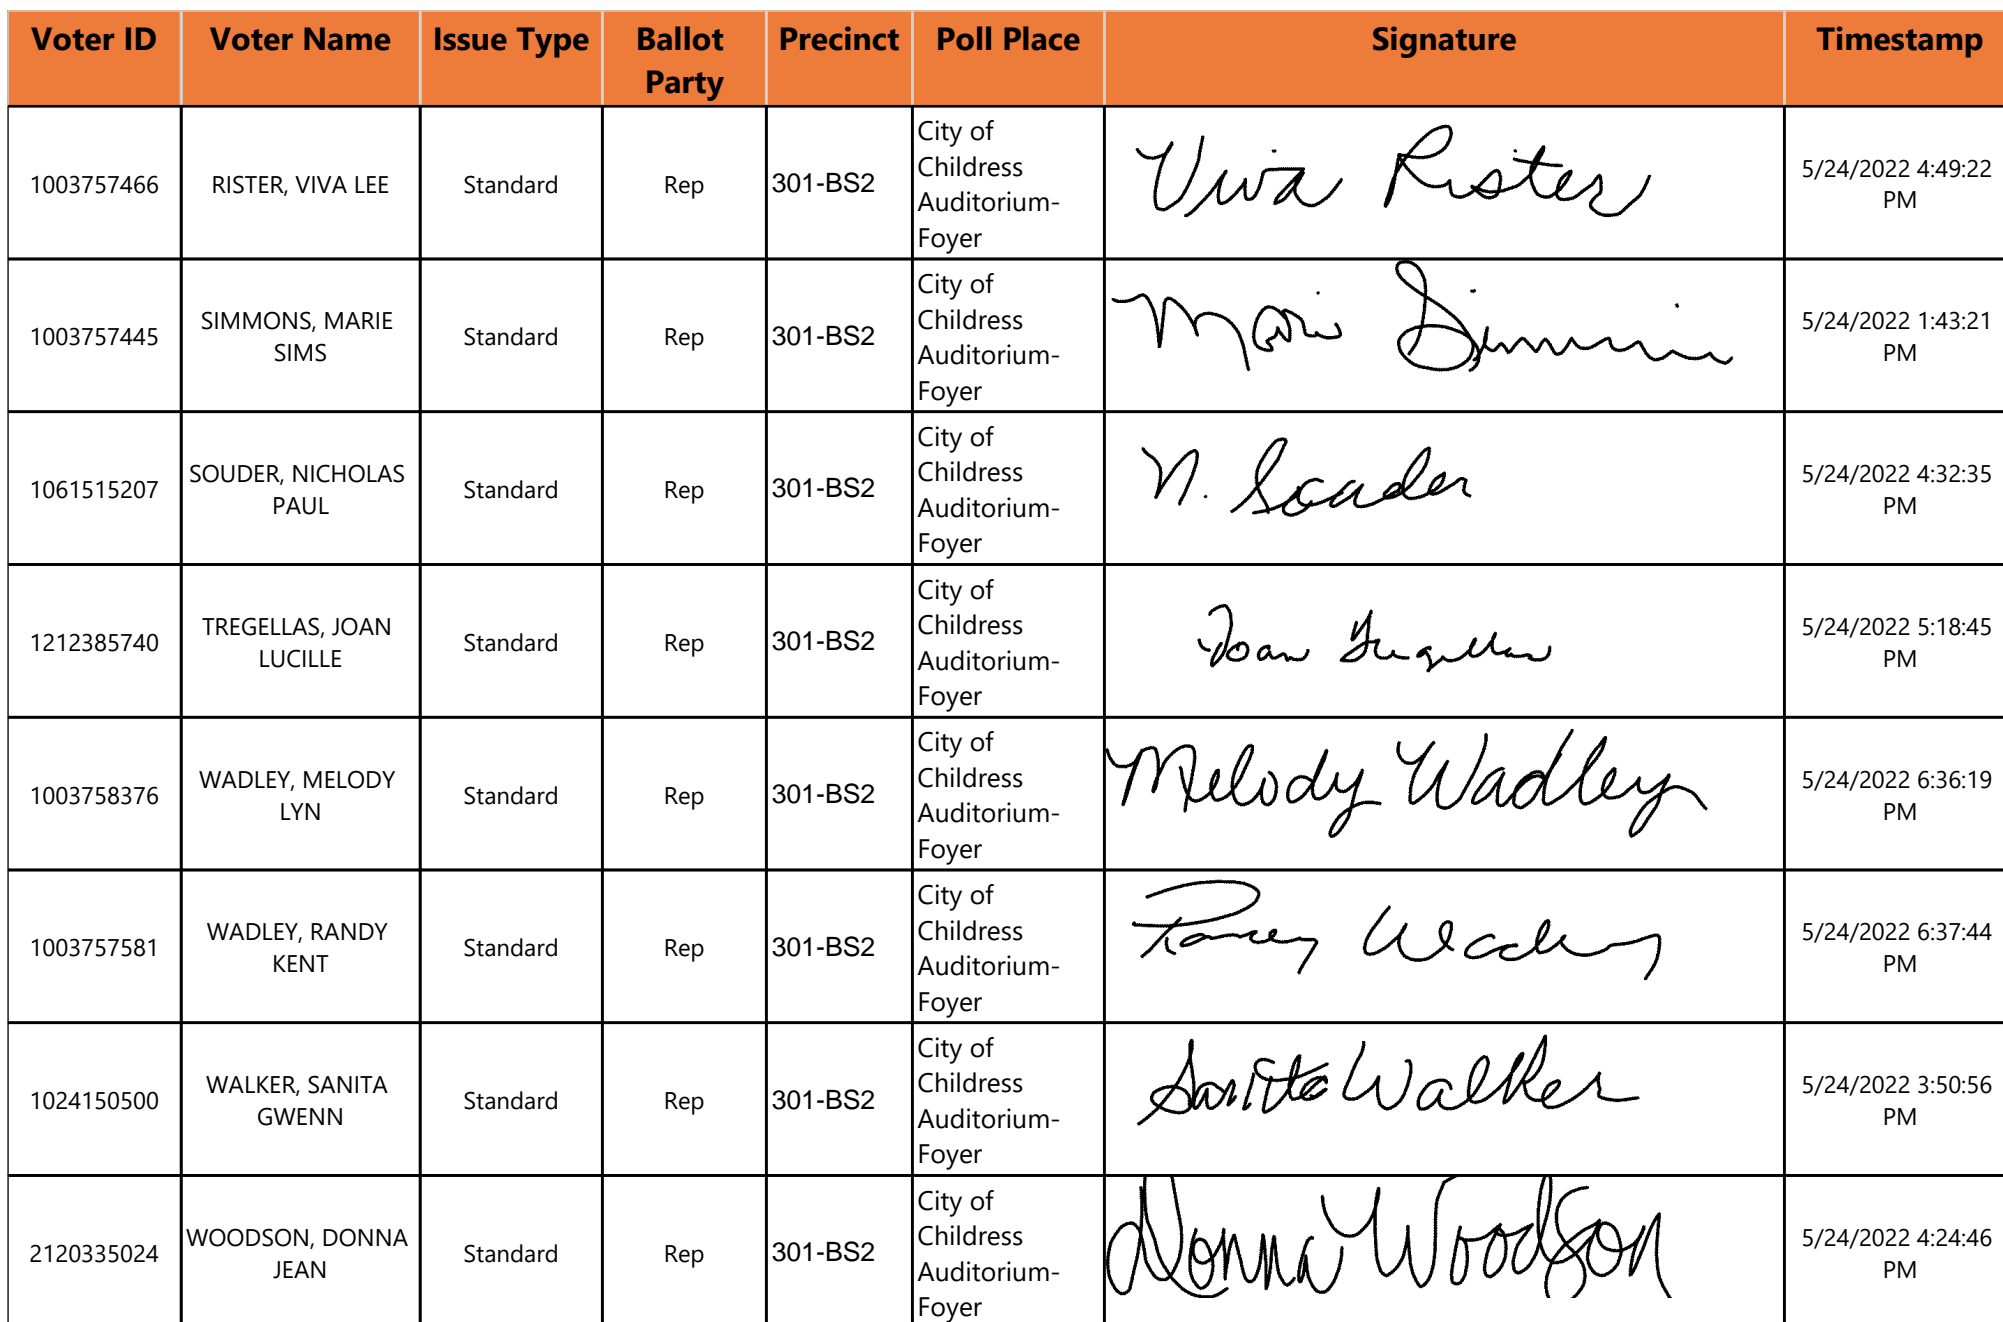 Voter ID Voter Name Issue Type Ballot Party Precinct Poll Place Signature Timestamp
1003757466 RISTER, VIVA LEE Standard Rep 301-BS2 City of Childress Auditorium-Foyer Viva Rister 5/24/2022 4:49:22 PM
1003757445 SIMMONS, MARIE SIMS Standard Rep 301-BS2 City of Childress Auditorium-Foyer Marie Simmons 5/24/2022 1:43:21 PM
1061515207 SOUDER, NICHOLAS PAUL Standard Rep 301-BS2 City of Childress Auditorium-Foyer N. Souder 5/24/2022 4:32:35 PM
1212385740 TREGELLAS, JOAN LUCILLE Standard Rep 301-BS2 City of Childress Auditorium-Foyer Joan Tregellas 5/24/2022 5:18:45 PM
1003758376 WADLEY, MELODY LYN Standard Rep 301-BS2 City of Childress Auditorium-Foyer Melody Wadley 5/24/2022 6:36:19 PM
1003757581 WADLEY, RANDY KENT Standard Rep 301-BS2 City of Childress Auditorium-Foyer Randy Wadley 5/24/2022 6:37:44 PM
1024150500 WALKER, SANITA GWENN Standard Rep 301-BS2 City of Childress Auditorium-Foyer Sanita Walker 5/24/2022 3:50:56 PM
2120335024 WOODSON, DONNA JEAN Standard Rep 301-BS2 City of Childress Auditorium-Foyer Donna Woodson 5/24/2022 4:24:46 PM